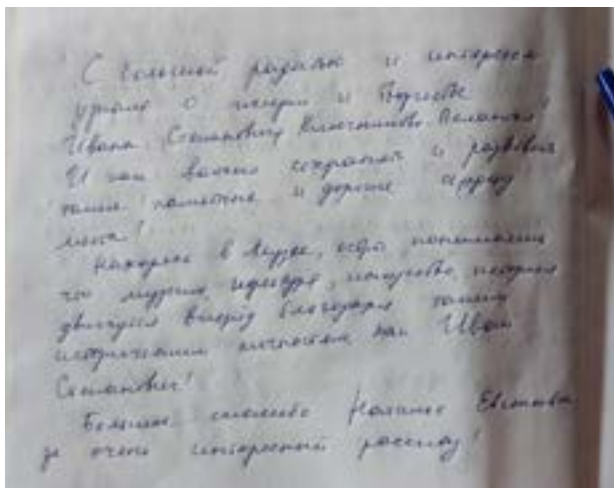 С большой радостью и интересом
узнала о жизни и творчестве
Ивана Степановича Ключникова-Палантая!
И как важно сохранять и развивать
такие памятные и дорогие сердцу
места!
Находясь в музее, остро понимаешь
что музыка, культура, искусство, история
двигается вперёд благодаря таким
историческим личностям как Иван
Степанович!
Большое спасибо
за очень интересный рассказ!